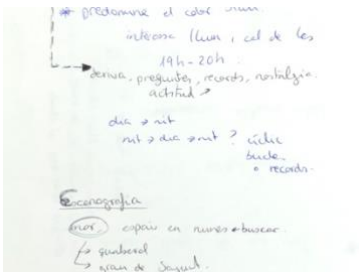 * predomina el color
interessa llum, cel de les
19h-20h
deriva, preguntes, records, nostàlgia.
actitud →
dia → nit
nit → dia → nit ? cíclic
bucle.
records.
Escenografia
espai en runes buscar